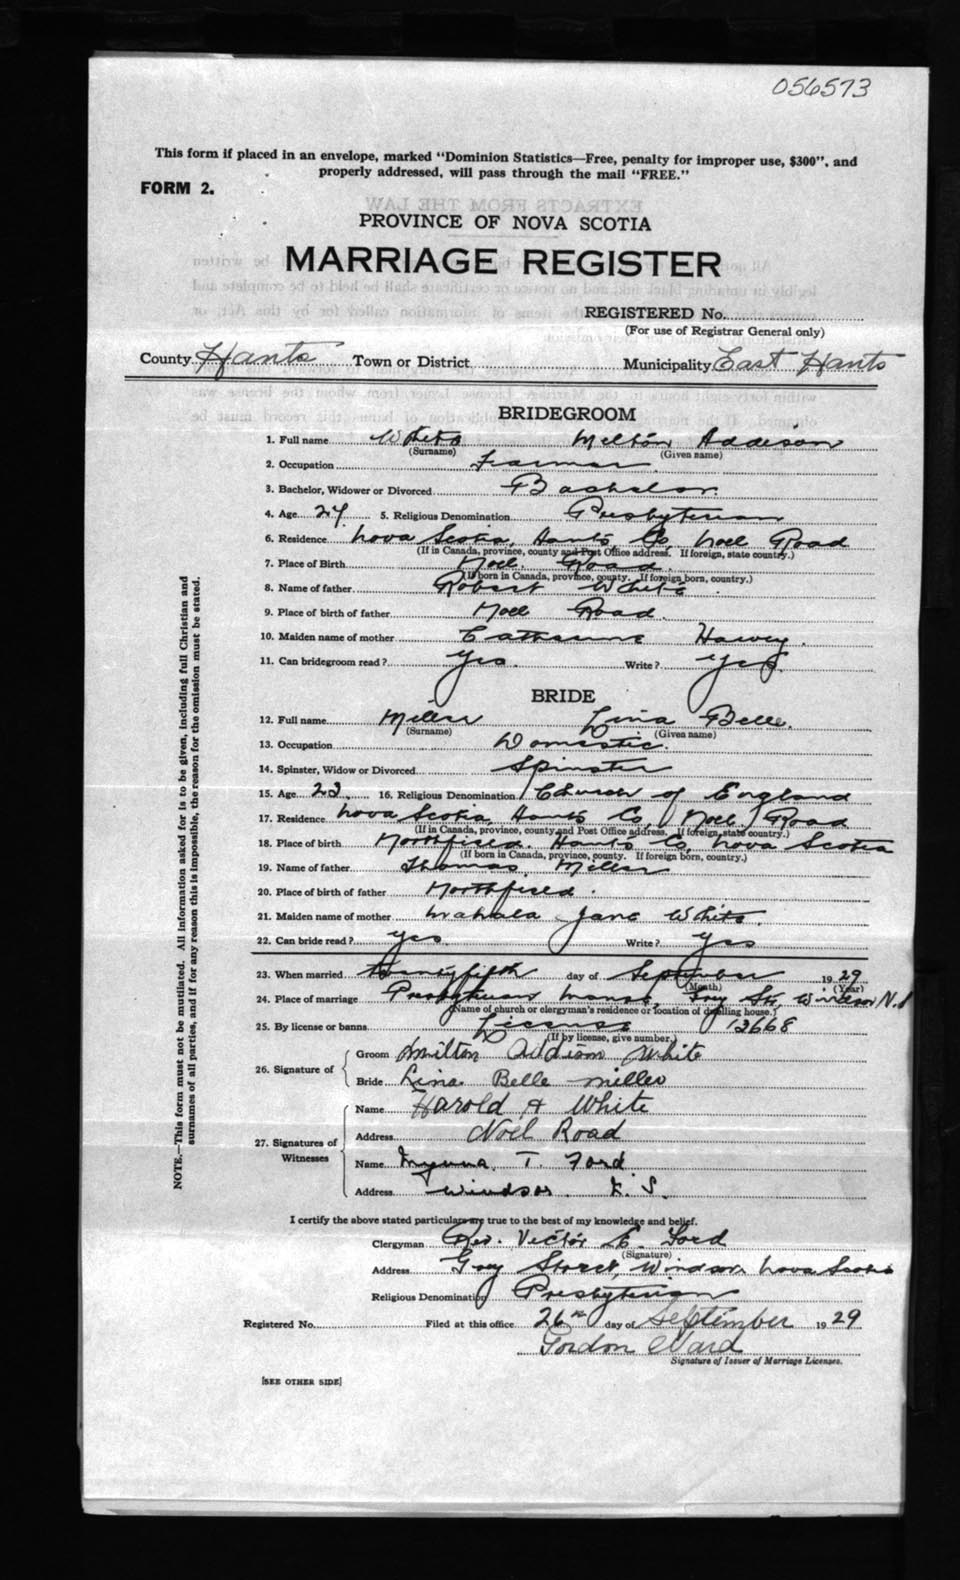 056573
This form if placed in an envelope, marked "Dominion Statistics—Free, penalty for improper use, $300", and
properly addressed, will pass through the mail "FREE."
FORM 2.
PROVINCE OF NOVA SCOTIA
MARRIAGE REGISTER
REGISTERED No.
(For use of Registrar General only)
County Hants Town or District Municipality East Hants
BRIDEGROOM
1. Full name White Milton Addison
(Surname) (Given name)
2. Occupation Farmer
3. Bachelor, Widower or Divorced Bachelor
4. Age 27 5. Religious Denomination Presbyterian
6. Residence Nova Scotia, Hants Co, Noel Road
(If in Canada, province, county and Post Office address. If foreign, state country.)
7. Place of Birth Noel Road
(If born in Canada, province, county. If foreign born, country.)
8. Name of father Robert White
9. Place of birth of father Noel Road
10. Maiden name of mother Catherine Harvey
11. Can bridegroom read? Yes. Write? Yes
BRIDE
12. Full name Miller Lina Belle.
(Surname) (Given name)
13. Occupation Domestic.
14. Spinster, Widow or Divorced Spinster
15. Age 23 16. Religious Denomination Church of England
17. Residence Nova Scotia, Hants Co, Noel Road
(If in Canada, province, county and Post Office address. If foreign, state country.)
18. Place of birth Northfield. Hants Co, Nova Scotia
(If born in Canada, province, county. If foreign born, country.)
19. Name of father Thomas Miller
20. Place of birth of father Northfield.
21. Maiden name of mother Mahala Jane White.
22. Can bride read? Yes Write? Yes
23. When married twenty fifth day of September 1929
(Month) (Year)
24. Place of marriage Presbyterian Manse, Grey St., Windsor N.S
(Name of church or clergyman's residence or location of dwelling house.)
25. By license or banns License 13668
(If by license, give number.)
26. Signature of
Groom Milton Addison White
Bride Lina Belle Miller
27. Signatures of Witnesses
Name Harold A White
Address Noel Road
Name T. Ford
Address Windsor N.S.
I certify the above stated particulars are true to the best of my knowledge and belief.
Clergyman Rev. Victor E. Ford
(Signature)
Address Grey Street, Windsor Nova Scotia
Religious Denomination Presbyterian
Registered No. Filed at this office 26th day of September 1929
Gordon Ward
Signature of Issuer of Marriage Licenses.
[SEE OTHER SIDE]
NOTE.—This form must not be mutilated. All information asked for is to be given, including full Christian and
surnames of all parties, and if for any reason this is impossible, the reason for the omission must be stated.